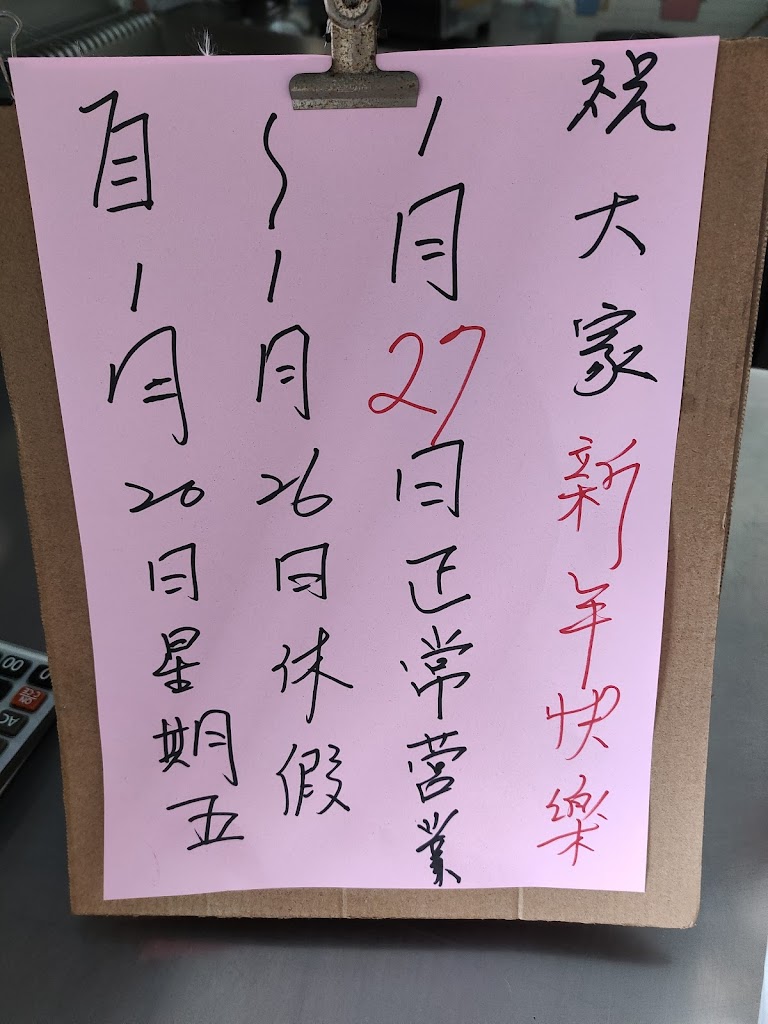 自1月20日星期五
~1月26日休假
1月27日正常營業
祝大家新年快樂
00
0
AC
ON
CE